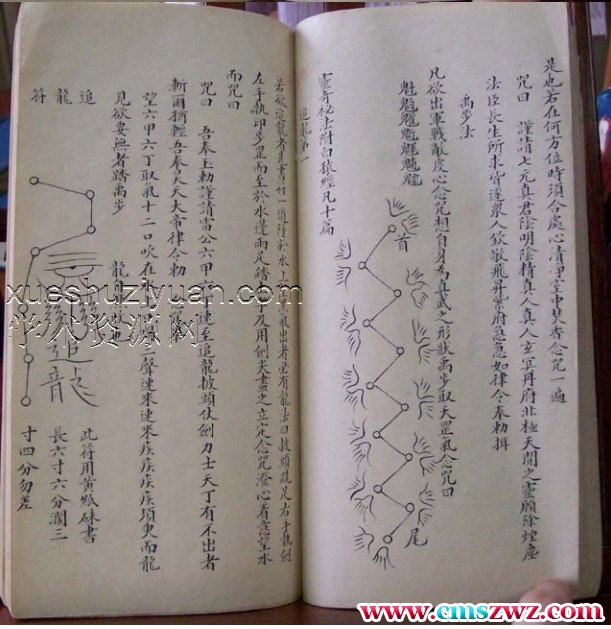 是也若在何方位時須令處心清淨室中焚香念咒一遍
咒曰 謹請七元真君陰明陰精真人真人玄冥丹府北極天關之靈願除煙塵
法臣長生所求皆遂衆人欽敬飛丹紫府急急如律令奉勅攝
禹步法
凡欲出軍戰敵皮心念咒想自身為真武之形狀禹步取天罡氣念咒曰
魁
首
尾
靈奇秘法附白猿經凡十篇
追龍第一
若欲追龍者先書符一道
水上
氣出者必有龍法曰披頭跣足右手執劍
左手執印步罡而至於水邊兩足踏
及用劍尖畫之立定念咒澄心看意望水
而咒曰
咒曰 吾奉玉勅謹請雷公六甲六丁速至追龍披頭仗劍力士天丁有不出者
斬爾
吾奉昊天大帝律令勅
望六甲六丁取氣十二口吹在水上
二聲速來速來疾疾疾疾須臾而龍
見欲要無者踏禹步
龍
追龍符
追龍
此符用黃紙硃書
長六寸六分濶三
寸四分勿差
xueshuziyuan.com
学术资源网
www.cmszwz.com